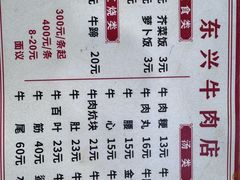 东兴牛肉店
食类
芥菜饭 3元
萝卜饭 3元
烧类
牛蹄 20元
300元/条起
400元/条
8-20元
面议
汤类
牛肉粳 13元
牛肉丸 16元
牛腰 15元
牛心 15元
牛肉炕块 21元
牛肚 23元
牛百叶 23元
牛筋 40元
牛尾 60元